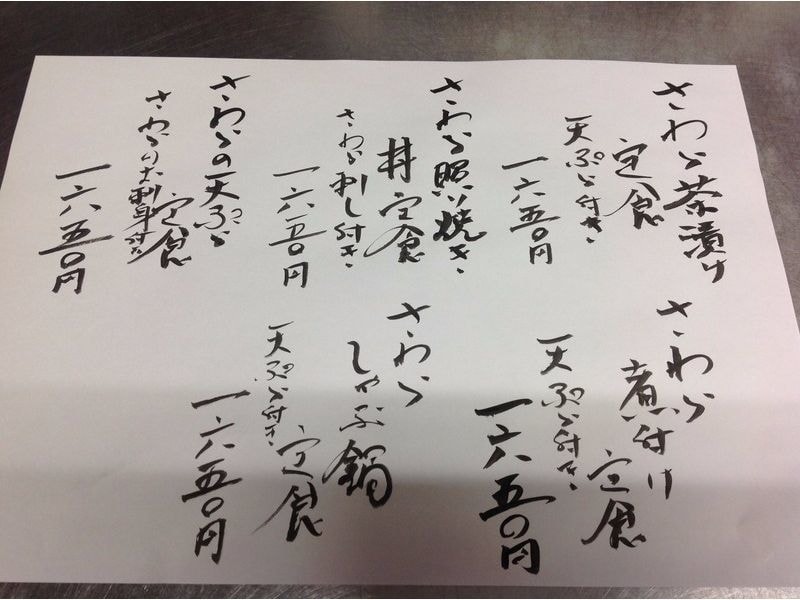 さわら茶漬け
定食
天ぷら付き
一六五〇円
さわら照り焼き
丼定食
さわら刺し付き
一六五〇円
さわらの天ぷら
定食
さわらのお刺身付き
一六五〇円
さわら
煮付け
定食
天ぷら付き
一六五〇円
さわら
しゃぶ鍋
定食
天ぷら付き
一六五〇円